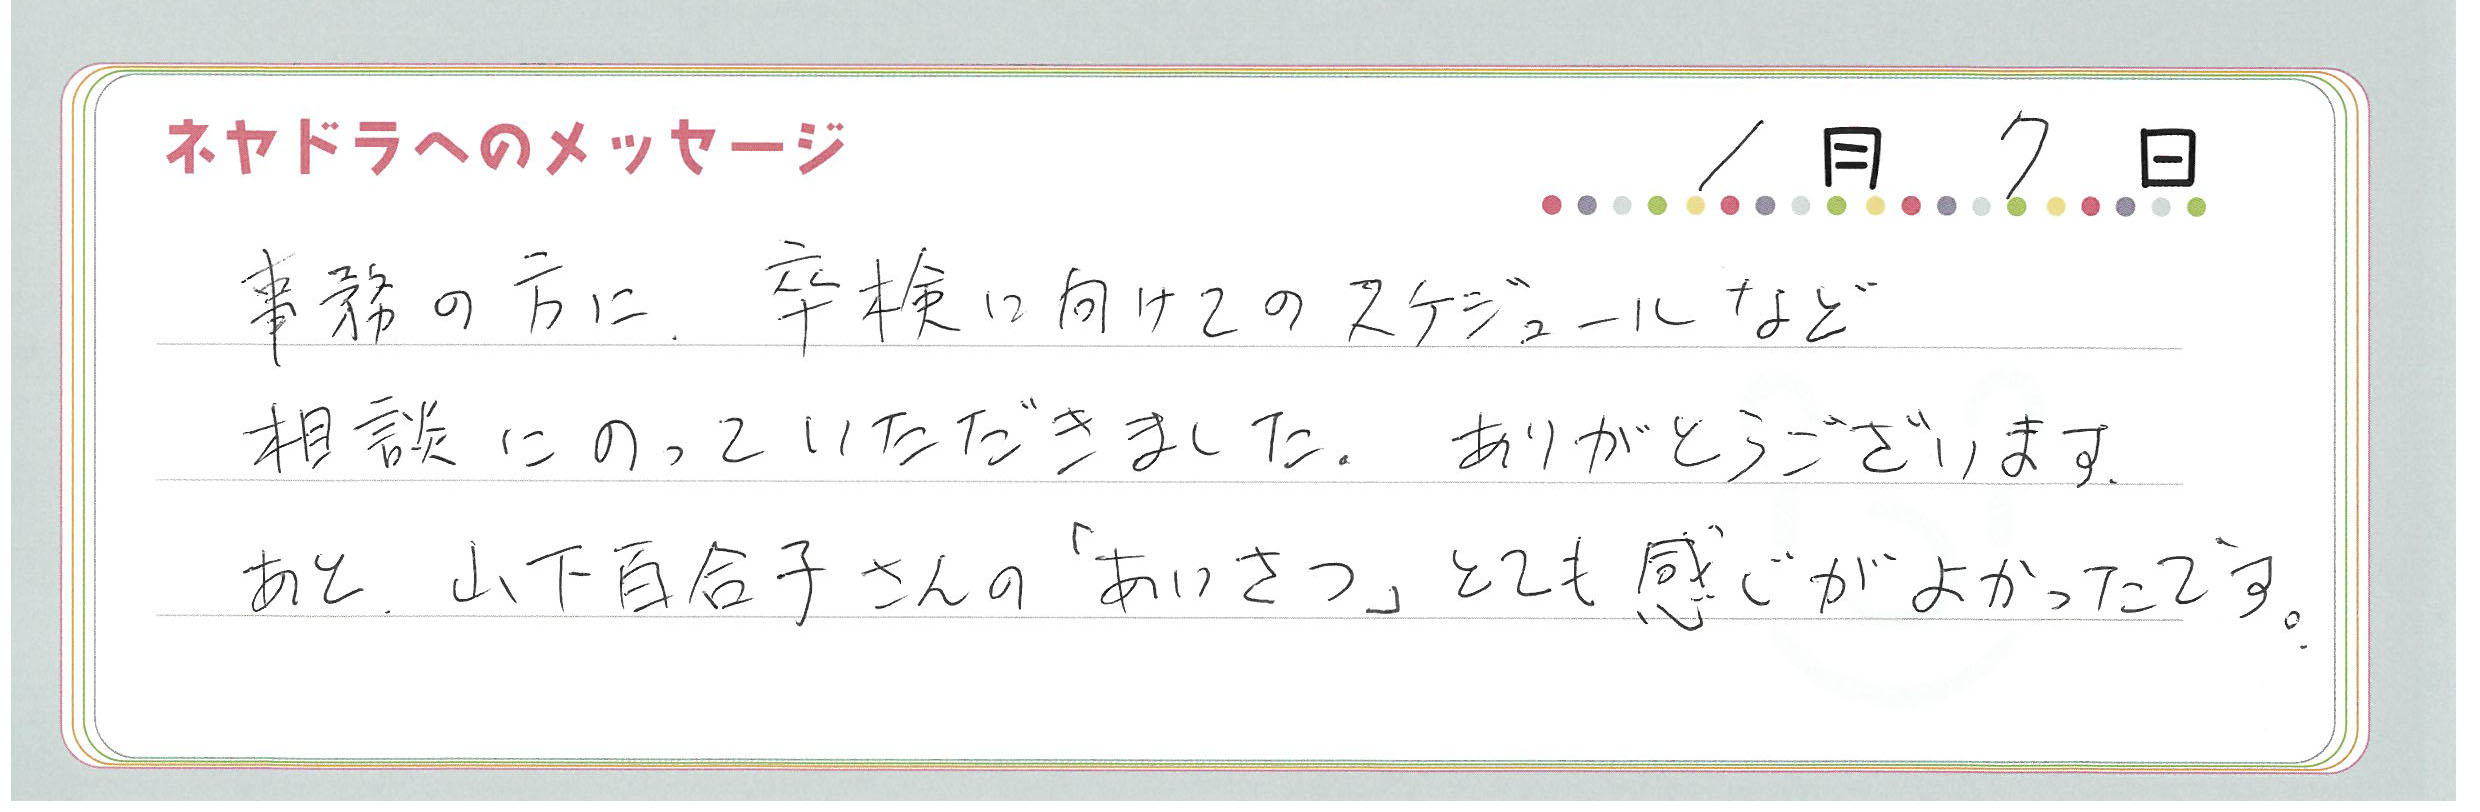 ネヤドラへのメッセージ 1月 7日
事務の方に、卒検に向けてのスケジュールなど
相談にのっていただきました。 ありがとうございます。
あと、山下百合子さんの「あいさつ」とても感じがよかったです。